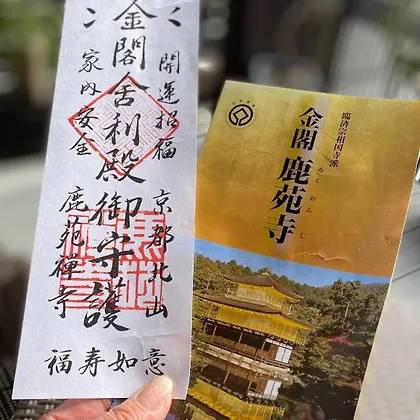 開運招福
金閣舎利殿御守護
家内安全
京都北山
鹿苑禅寺
福寿如意
臨済宗相国寺派
金閣 鹿苑寺
ろくおんじ